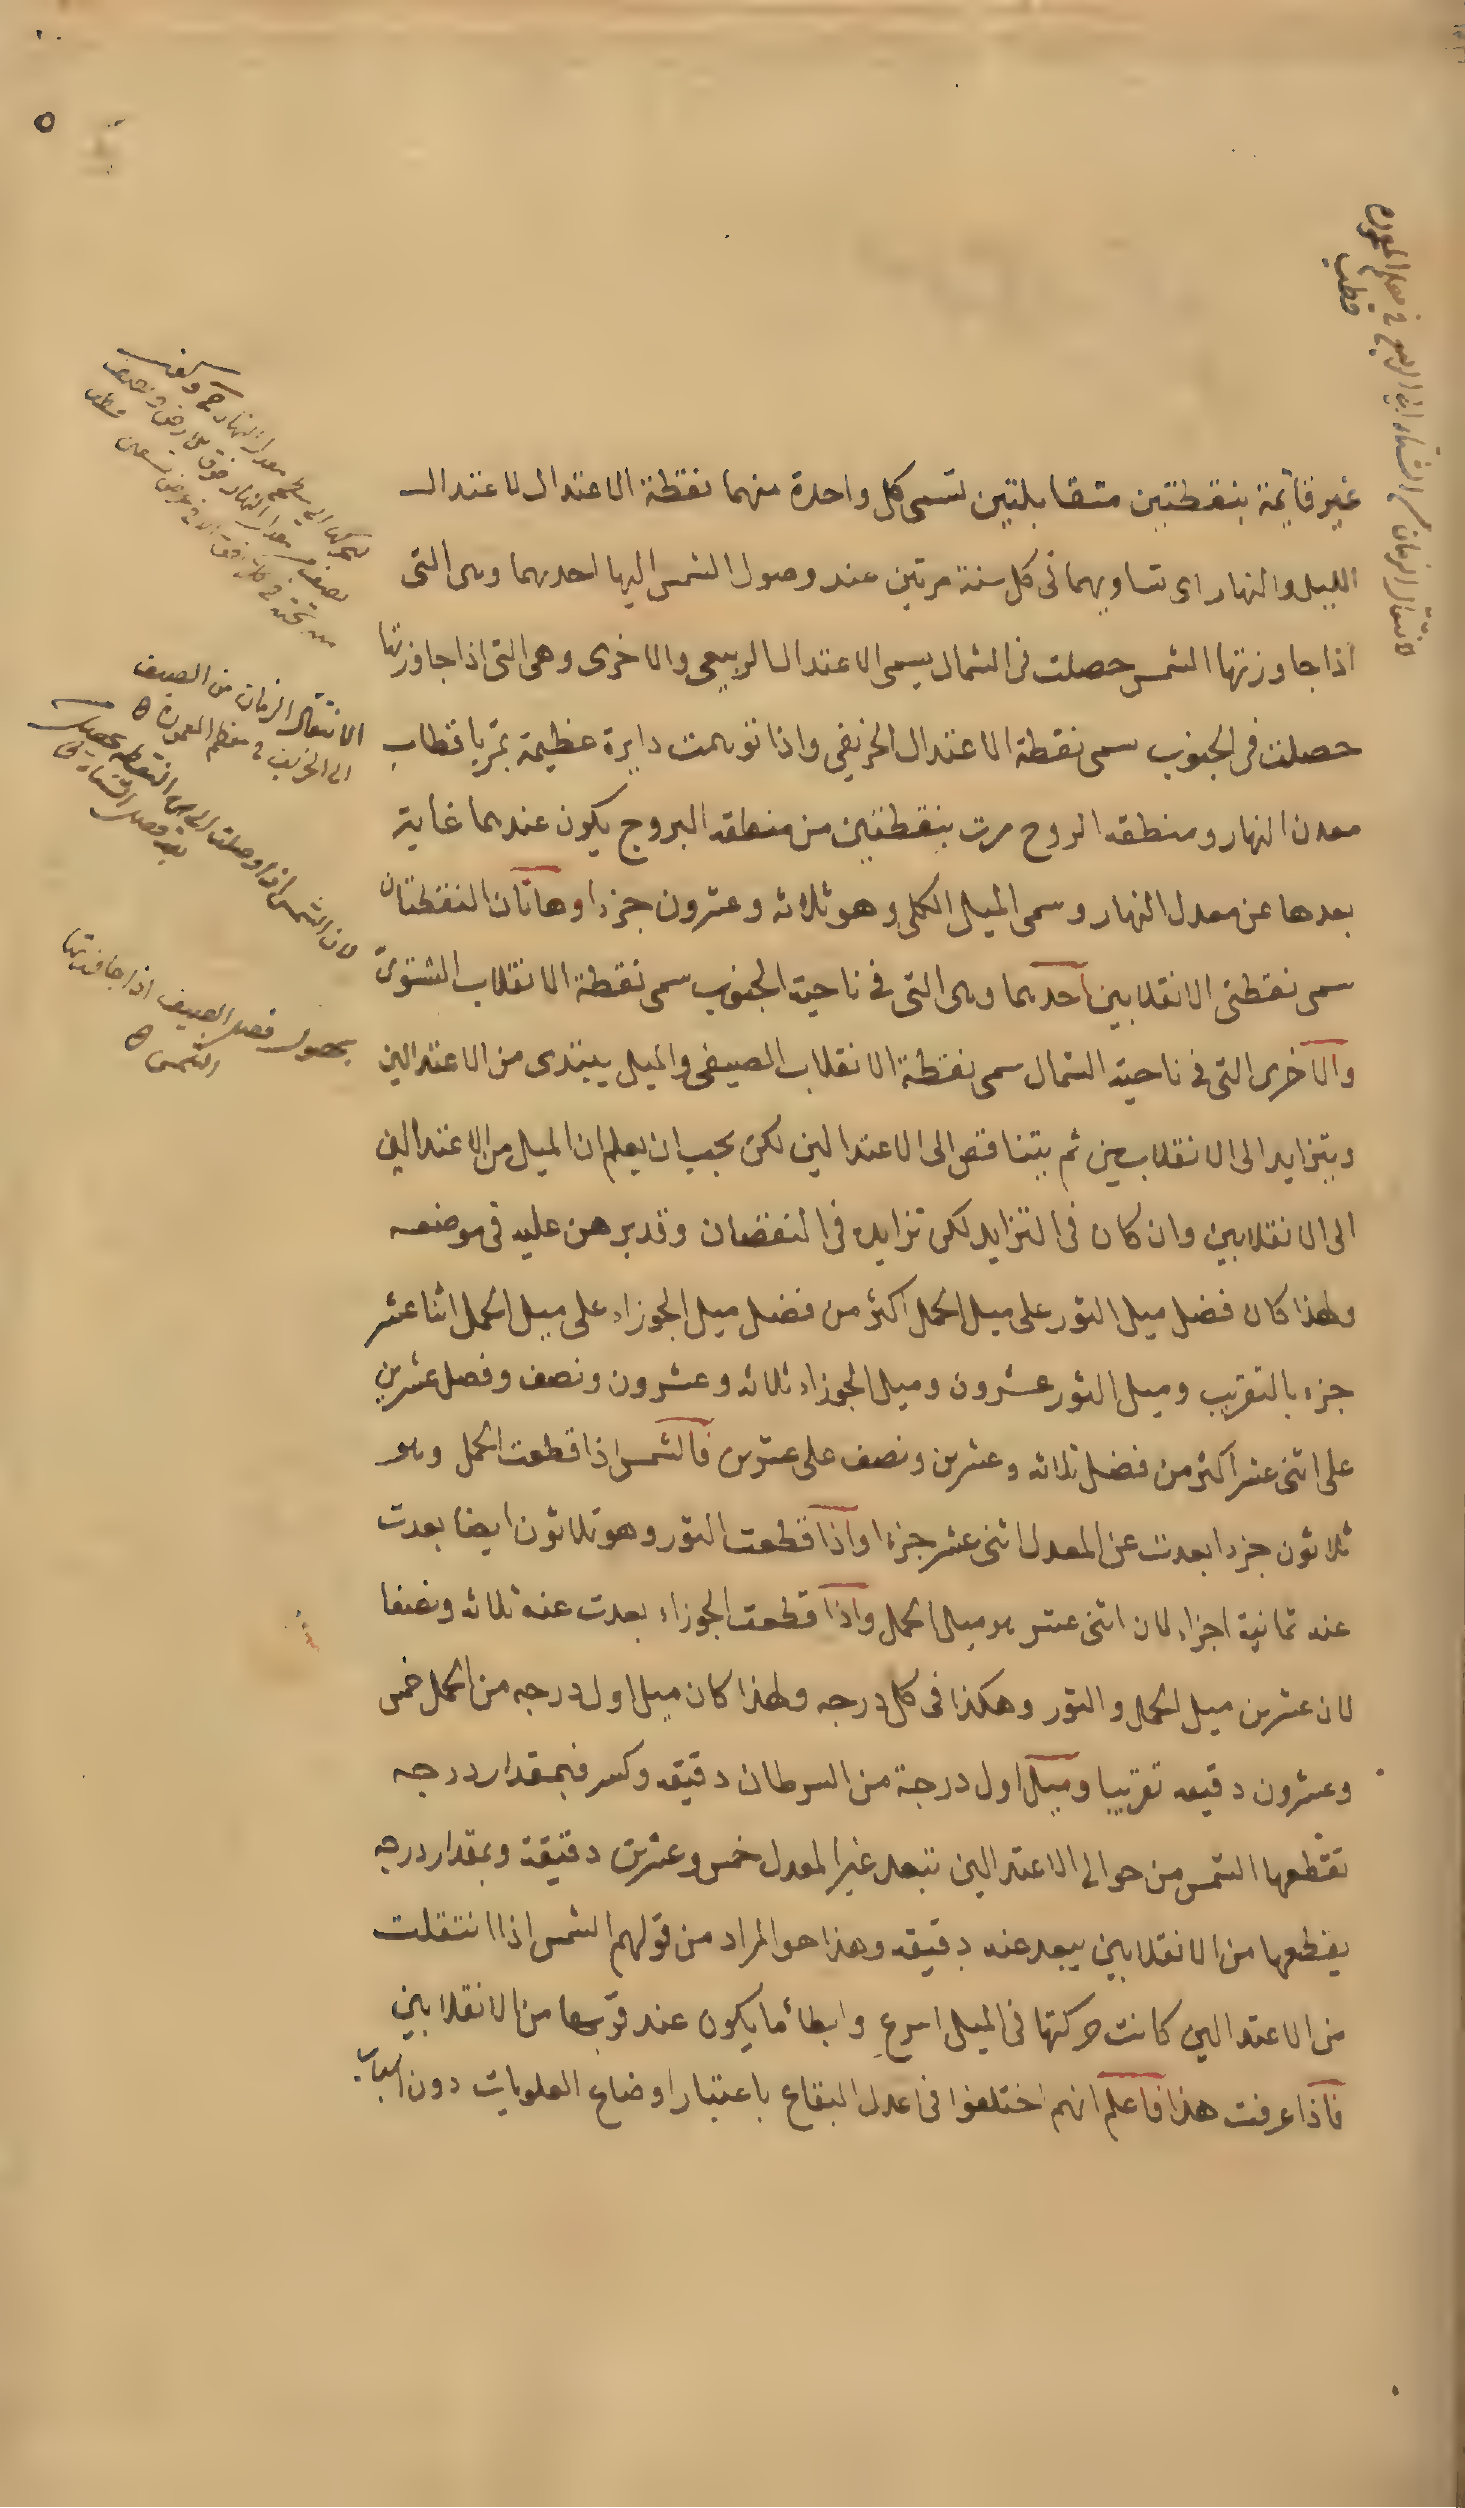 غير قايمة بنقطتين متقابلتين تسمى كل واحدة منهما نقطة الاعتدال لاعتدال
الليل والنهار اى تساويهما فى كل سنة مرتين عند وصول الشمس اليها احديهما وهى التى
اذا جاوزتها الشمس حصلت فى الشمال يسمى الاعتدال الربيعى والاخرى وهى التى اذا جاوزتها
حصلت فى الجنوب سمى نقطة الاعتدال الخريفى واذا توهمت دايرة عظيمة تمر باقطاب
معدل النهار ومنطقه البروج مرت بنقطتين من منطقه البروج يكون عندهما غاية
بعدها عن معدل النهار وسمى الميل الكلى وهو ثلاثه وعشرون جزءا وهاتان النقطتان
سمى نقطتى الانقلابين احديهما وهى التى فى ناحية الجنوب سمى نقطة الانقلاب الشتوى
والاخرى التى فى ناحية الشمال سمى نقطة الانقلاب الصيفى والميل يبتدى من الاعتدالين
ويتزايد الى الانقلابين ثم يتناقص الى الاعتدالين لكن يجب ان يعلم ان الميل من الاعتدالين
الى الانقلابين وان كان فى التزايد لكن تزايده فى النقصان وقد برهن عليه فى موضعه
ولهذا كان فضل ميل الثور على ميل الحمل اكثر من فضل ميل الجوزاء على ميل الحمل اثنا عشر
جزء بالتقريب وميل الثور عشرون وميل الجوزاء ثلاثه وعشرون ونصف وفضل عشرين
على اثنى عشر اكثر من فضل ثلاثه وعشرين ونصف على عشرين فالشمس اذا قطعت الحمل وهو
ثلاثون جزءا بعدت عن المعدل اثنى عشر جزءا واذا قطعت الثور وهو ثلاثون ايضا بعدت
عنه ثمانية اجزاء لان اثنى عشر هو ميل الحمل واذا قطعت الجوزاء بعدت عنه ثلاثه ونصفا
لان عشرين ميل الحمل والثور وهكذا فى كل درجه ولهذا كان ميل اول درجه من الحمل خمس
وعشرون دقيقه تقريبا وميل اول درجة من السرطان دقيقه وكسر فبمقدار درجه
تقطعها الشمس من حوالى الاعتدالين تبعد عن المعدل خمس وعشرين دقيقة وبمقدار درجه
يقطعها من الانقلابين يبعد عنه دقيقه وهذا هو المراد من قولهم الشمس اذا انتقلت
من الاعتدالين كانت حركتها فى الميل اسرع وابطأ ما يكون عند قربها من الانقلابين
فاذا عرفت هذا فاعلم انهم اختلفوا فى اعدل البقاع باعتبار اوضاع العلويات دون اسباب
الانتقال الزمان من الصيف
الى الخريف فى معظم المعمورة
لان الشمس اذا وصلت الى هذه النقطه يحصل
فصل الشتاء فى
يحصل فصل الصيف اذا جاوزتها
الشمس
لانتقال الزمان من الشتاء الى الربيع فى معظم المعمورة